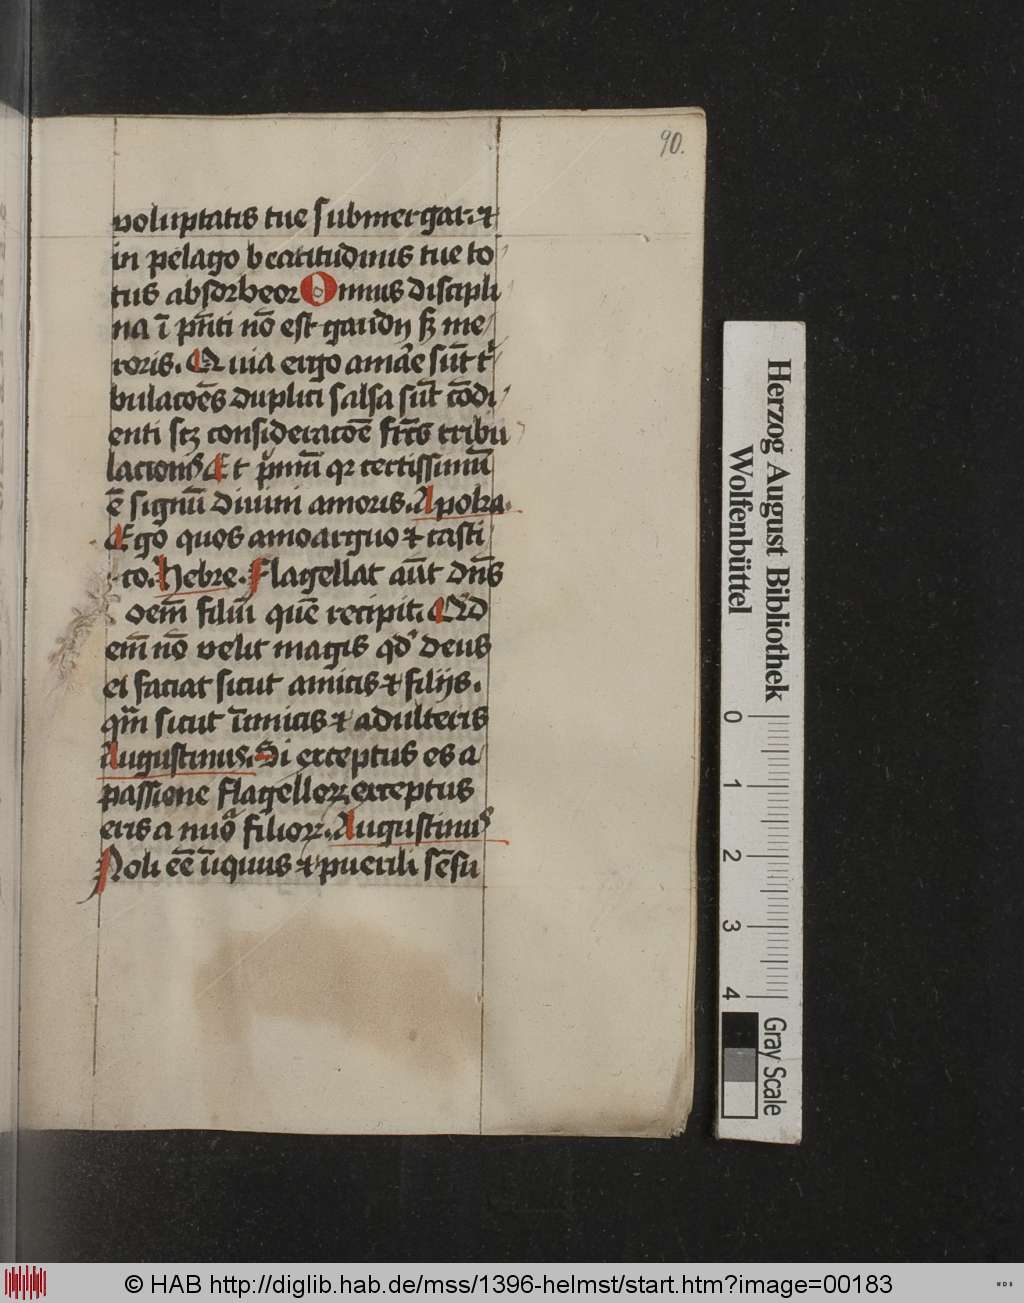 90.
voluptatis tue submergar. et
in pelago beatitudinis tue to
tus absorbeor Omnis discipli
na ī pn̄ti nō est gaudij sꝫ me
roris. Quia ergo amār̄e sūt tͥ
bulacōēs duplici salsa sūt cōdi
enti scꝫ consideracōe frc̄s tribu
lacionis Et pͥmū qꝛ certissimū
ē signū diuini amoris. Apoka.
Ego quos amo arguo et casti
co. Hebre. Flagellat aūt dn̄s
oem̄ filiū quē recipit. Qͥd
em̄ nō velit magis qd̓ deus
ei faciat sicut amicis et filijs.
qm̄ sicut īimicis et adulteris
Augustinus. Si exceptus es a
passione flagelloꝝ exceptus
eris a nuͦo filioꝝ. Augustinus
Noli eē īiquus et puerili sēsu
Herzog August Bibliothek
Wolfenbüttel
0 1 2 3 4
Gray Scale
© HAB http://diglib.hab.de/mss/1396-helmst/start.htm?image=00183